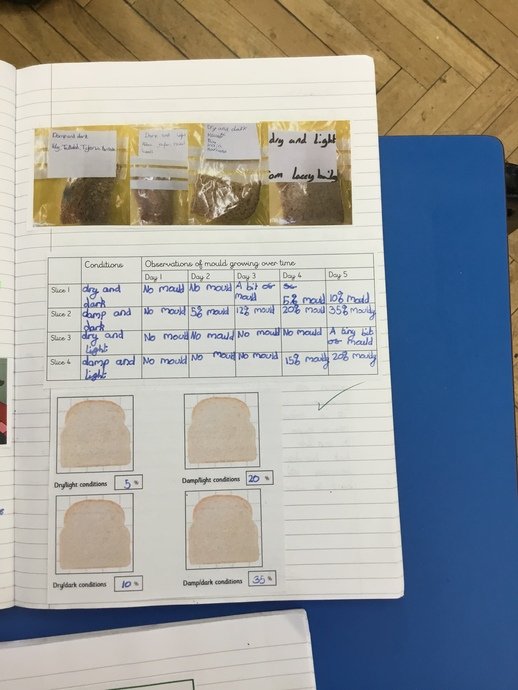 Damp and dark
Damp and light
Dry and dark
dry and light
Conditions Observations of mould growing over time
Day 1 Day 2 Day 3 Day 4 Day 5
Slice 1 dry and dark No mould No mould A bit of mould 5% mould 10% mould
Slice 2 damp and dark No mould 5% mould 12% mould 20% mould 35% mouldy
Slice 3 dry and light No mould No mould No mould No mould A tiny bit of mould
Slice 4 damp and light No mould No mould No mould 15% mouldy 20% mouldy
Dry/light conditions 5 %
Damp/light conditions 20 %
Dry/dark conditions 10 %
Damp/dark conditions 35 %